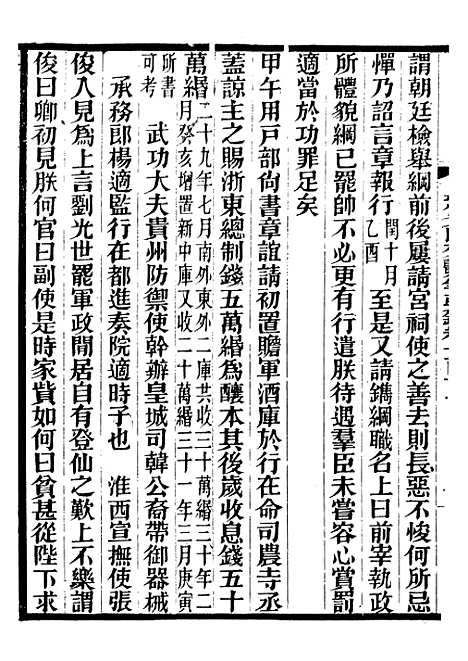 謂朝廷檢舉綱前後屢請宮祠使之善去則長惡不悛何所忌
憚乃詔言章報行閏十月乙酉至是又請鐫綱職名上曰前宰執政
所體貌綱已罷帥不必更有行遣朕待遇羣臣未嘗容心賞罰
適當於功罪足矣
甲午用戸部尚書章誼請初置贍軍酒庫於行在命司農寺丞
蓋諒主之賜浙東總制錢五萬緡爲釀本其後歲收息錢五十
萬緡二十九年七月南外東外二庫共收三十萬緡三十年二月癸亥增置新中庫又收二十萬緡三十一年三月庚寅
所書可考武功大夫貴州防禦使幹辦皇城司韓公裔帶御器械
承務郎楊適監行在都進奏院適時子也　淮西宣撫使張
俊入見爲上言劉光世罷軍政閒居自有登仙之歎上不樂謂
俊曰卿初見朕何官曰副使是時家貲如何曰貧甚從陛下求